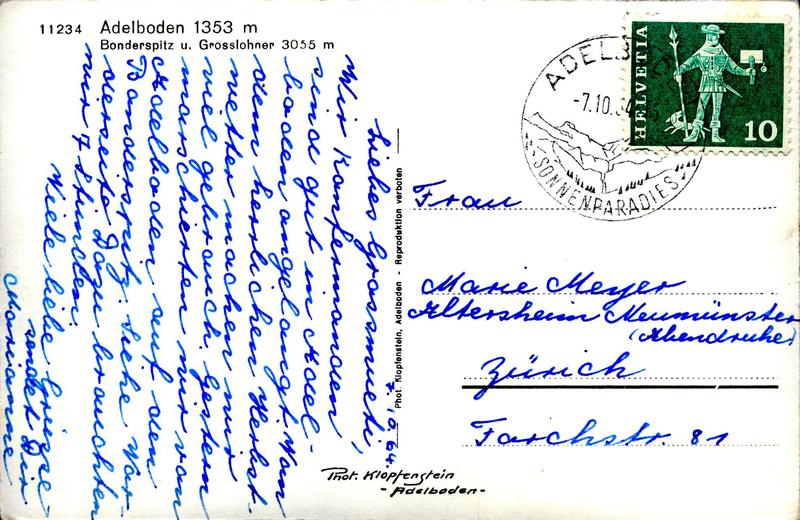 11234 Adelboden 1353 m
Bonderspitz u. Grosslohner 3055 m
7.10.64.
Liebes Grossmueti,
Wir Konfermanden
sind gut in Adel-
boden angelangt. Von
dem herrlichen Herbst-
wetter machen wir
viel gebrauch. Gestern
marschierten wir von
Adelboden auf den
Bonderspitz. Siehe Vor-
derseite. Dazu brauchten
wir 7 Stunden.
Viele liebe Grüsse
sendet Dir
Marianne
Phot. Klopfenstein, Adelboden - Reproduktion verboten
Phot. Klopfenstein
- Adelboden -
ADELB
-7.10.64
SONNENPARADIES
HELVETIA
10
Frau
Marie Meyer
Altersheim Neumünster
(Abendruhe)
Zürich
Forchstr. 81